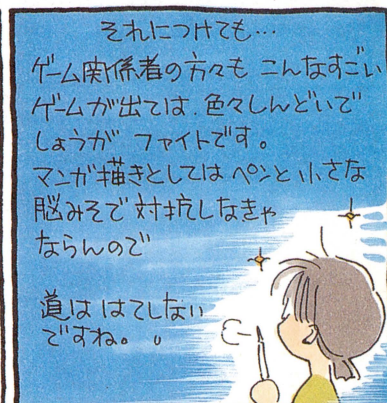 それにつけても…
ゲーム関係者の方々も こんなすごい
ゲームが出ては、色々しんどいで
しょうが ファイトです。
マンガ描きとしては ペンと小さな
脳みそで対抗しなきゃ
ならんので
道は はてしない
ですね。